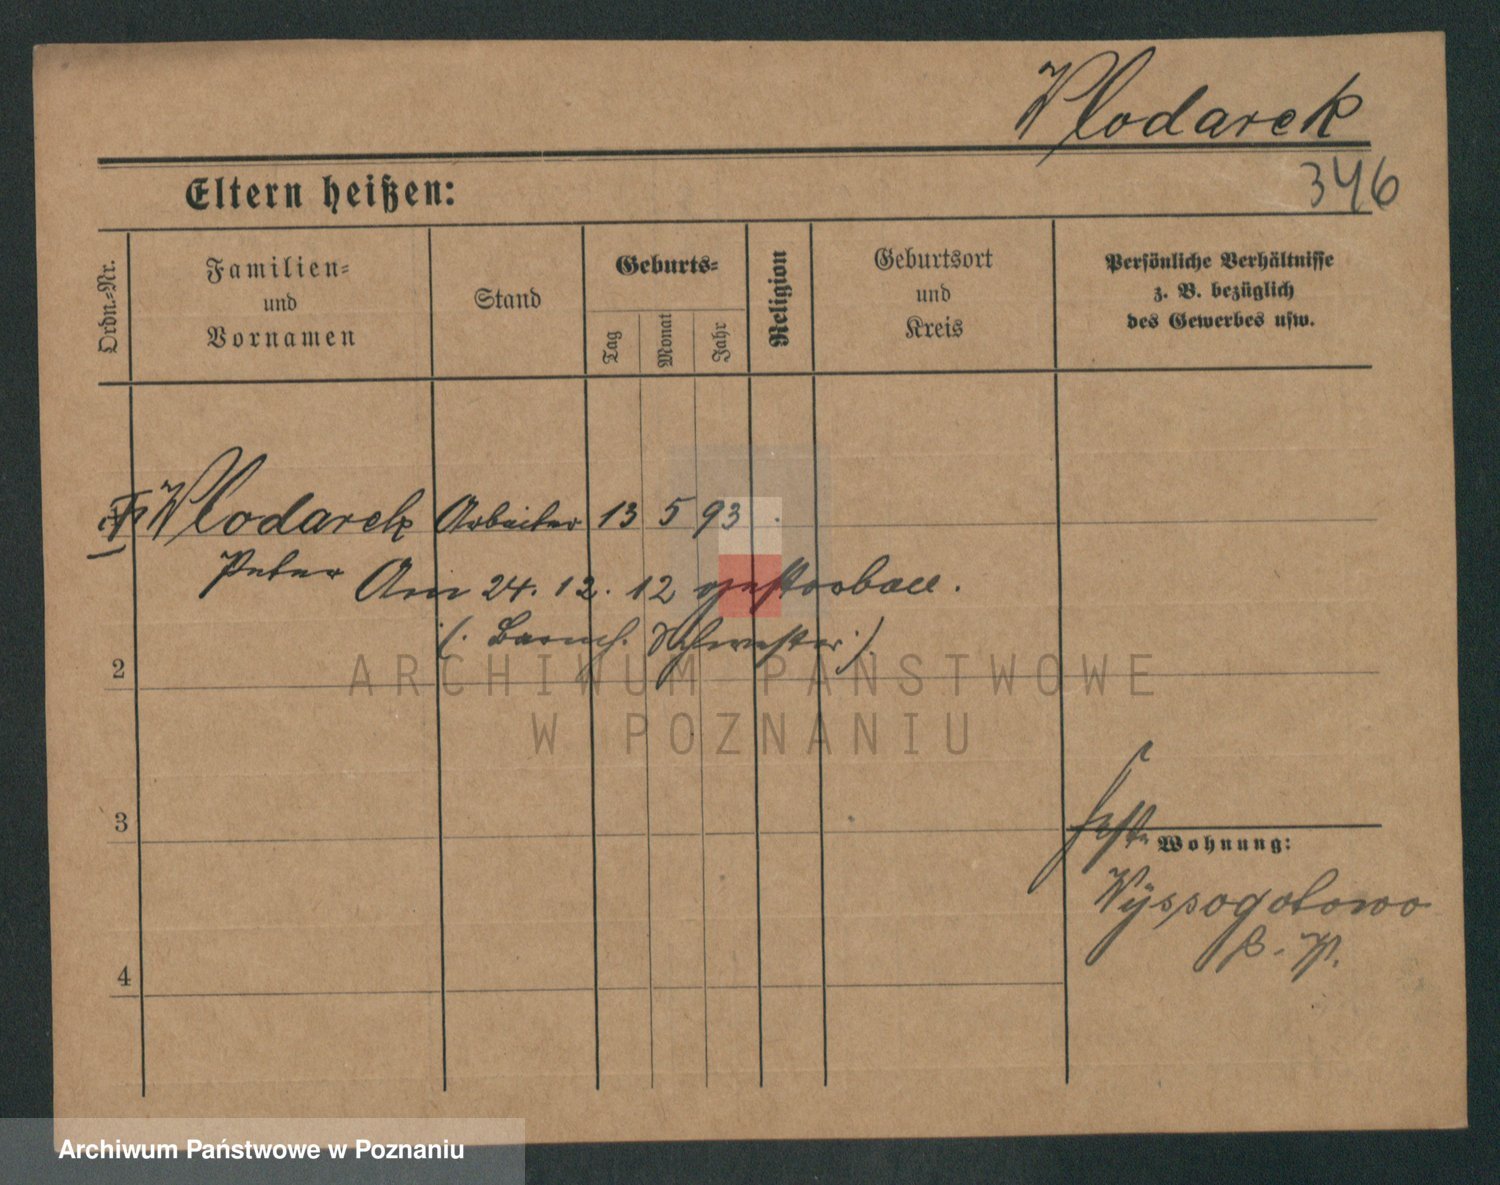 Wlodarek
346
Eltern heißen:
Ordn.-Nr.
Familien-
und
Vornamen
Stand
Geburts-
Tag
Monat
Jahr
Religion
Geburtsort
und
Kreis
Persönliche Verhältnisse
z. B. bezüglich
des Gewerbes usw.
Wlodarek Arbeiter 13 5 93
Peter Am 24. 12. 12 gestorben.
(: Schwester :)
2
ARCHIWUM PAŃSTWOWE
W POZNANIU
3
Wohnung:
Wyssogotowo
4
Archiwum Państwowe w Poznaniu